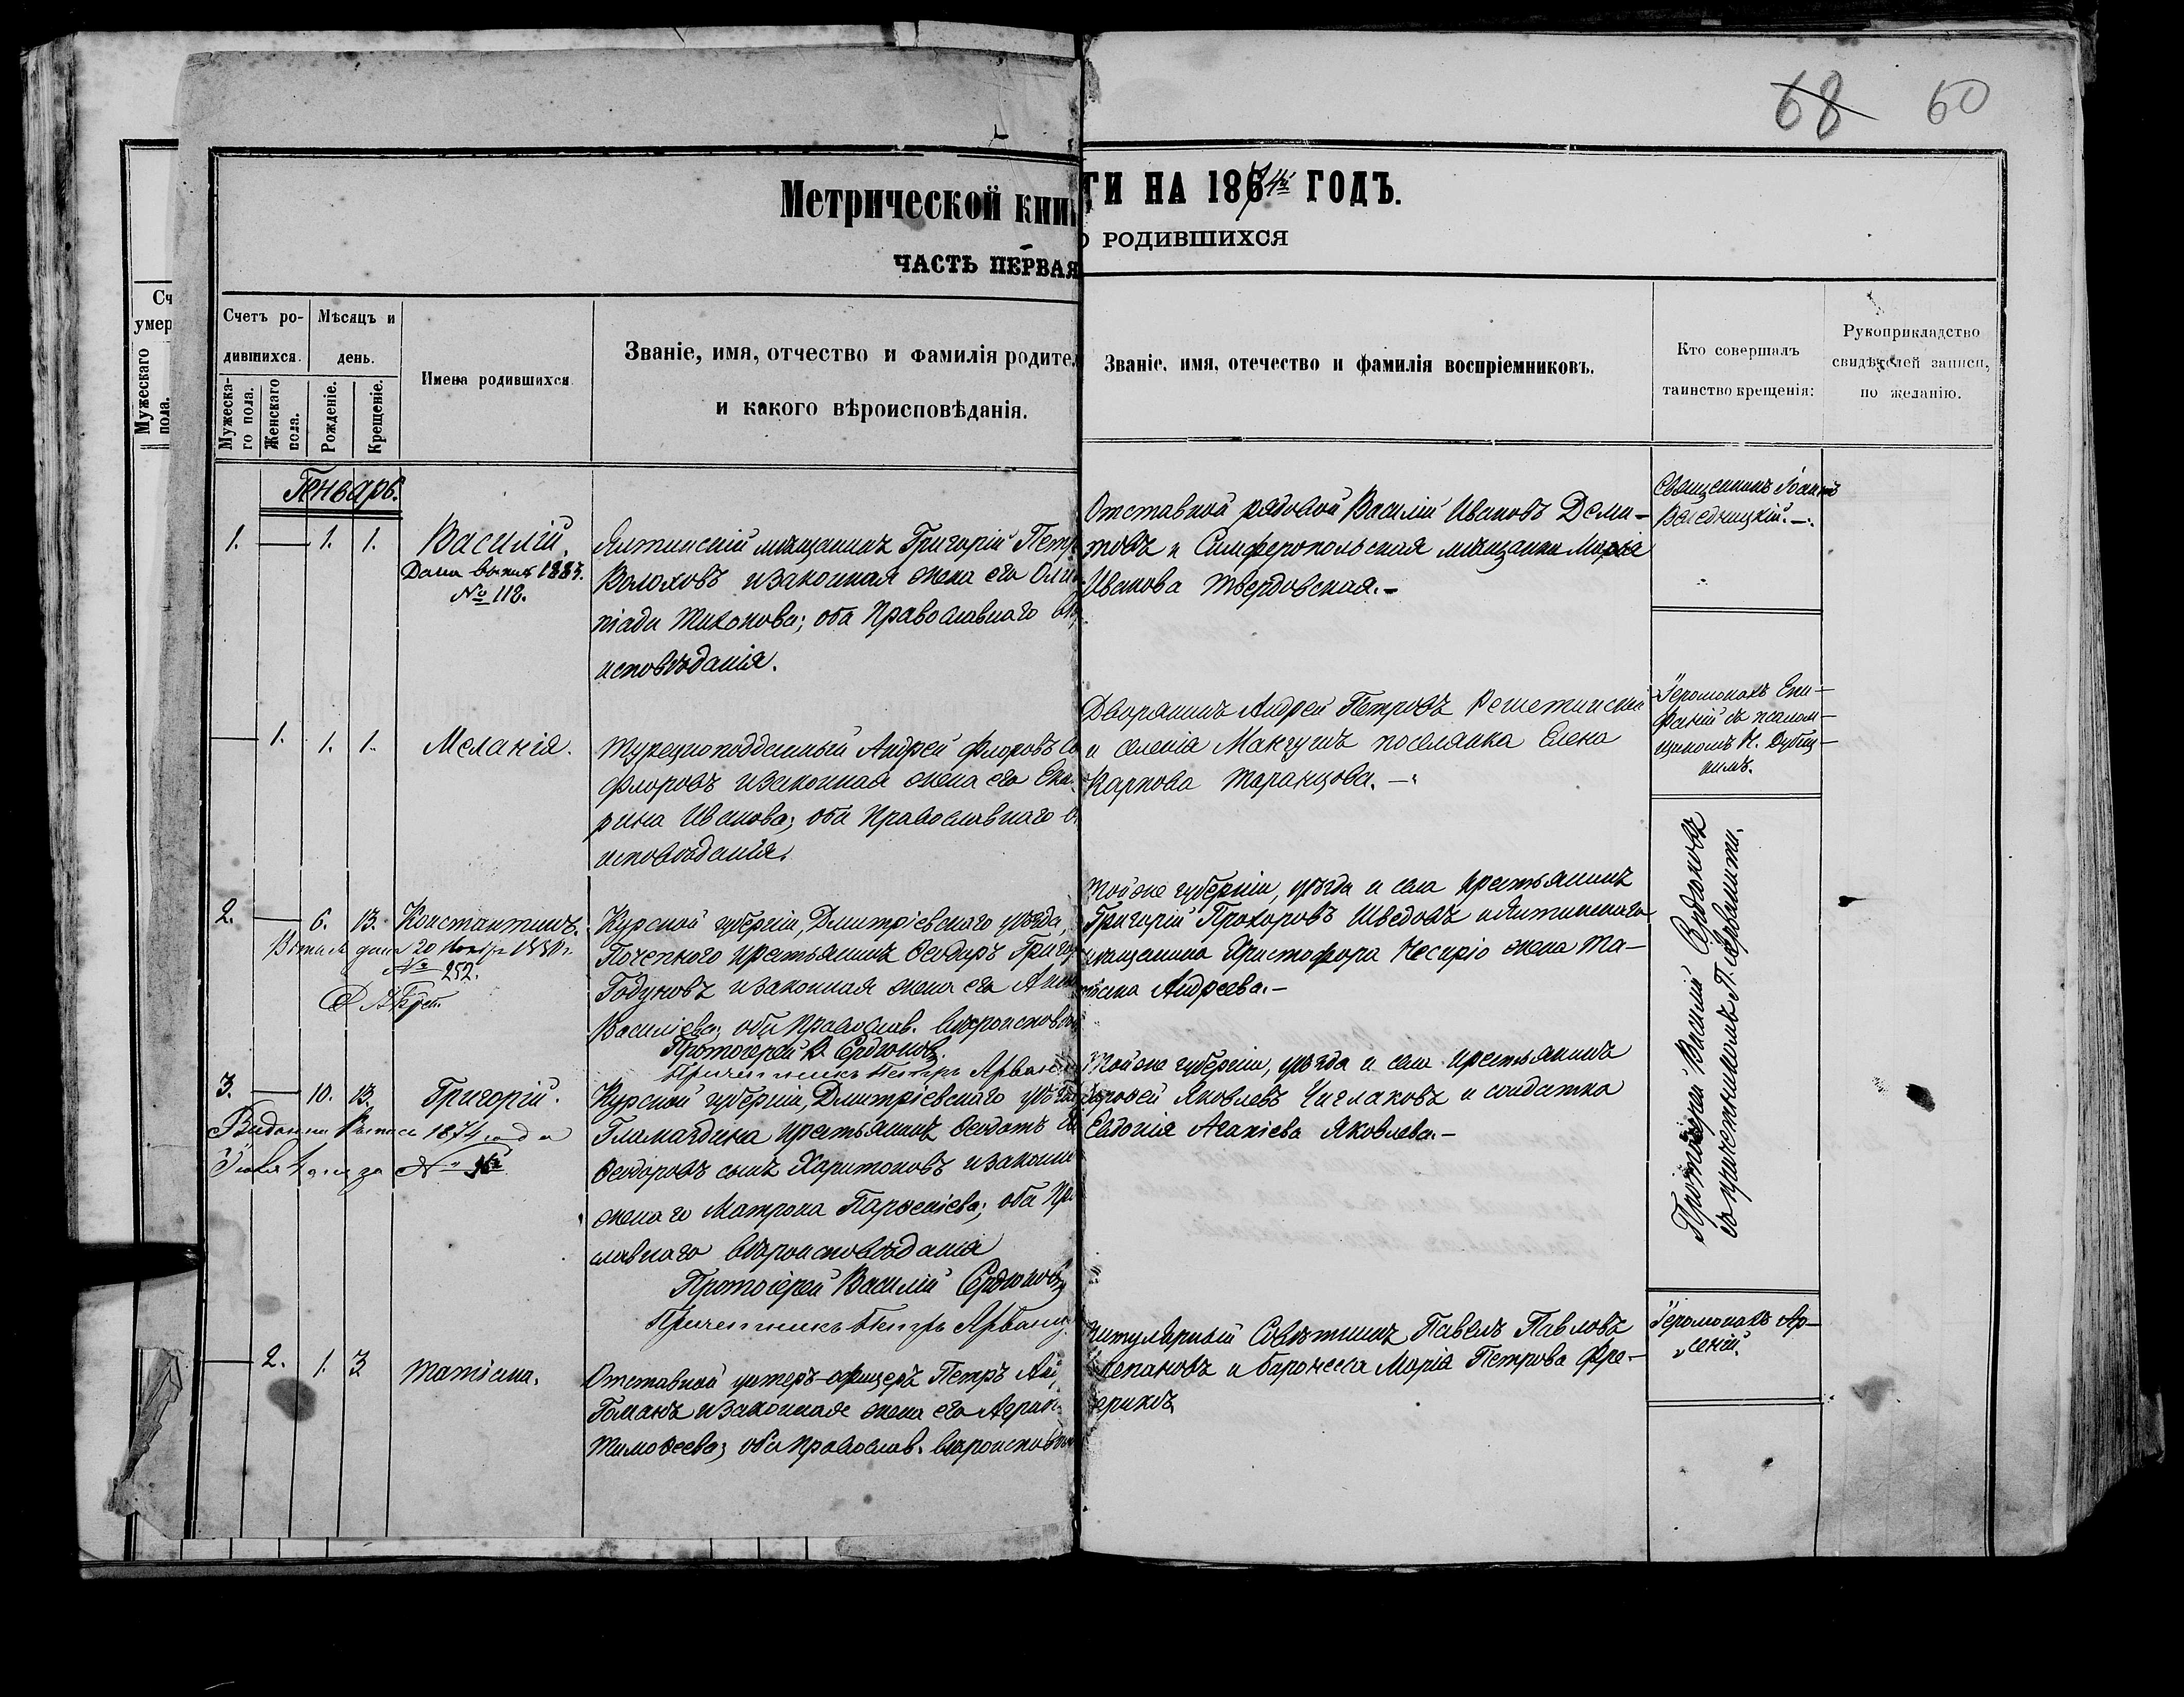 68 60
Метрической книгти на 1874й годъ.
о родившихся
часть первая
Сч
умер
Мужескаго
пола.
Счетъ ро-
дившихся.
Мужеска-
го пола.
Женскаго
пола.
Мѣсяцъ и
день.
Рожденіе.
Крещеніе.
Имена родившихся
Званіе, имя, отчество и фамилія родител
и какого вѣроисповѣданія.
Званіе, имя, отечество и фамилія воспріемниковъ.
Кто совершалъ
таинство крещенія:
Рукоприкладство
свидѣтелей записи,
по желанію.
Генварь.
1. 1. 1.
Василій.
Дана выпись 1883.
№ 112.
Ялтинскій мѣщанинъ Григорій Петр
Волоховъ изаконная жена его Олим
піада Тихонова; оба Православнаго вѣ
исповѣданія.
Отставной рядовой Василій Ивановъ Деми-
товъ и Симферопольская мѣщанка Марія
Иванова Твердовская.-
Священникъ Іоаннъ
1. 1. 1.
Меланія.
Турецкоподданный Андрей Флоровъ
Флоровъ изаконная жена его Ека
рина Иванова; оба Православнаго в
исповѣданія.
Дворянинъ Андрей Петровъ Решетинскій
и селенія Мангушъ поселянка Елена
Карпова Таранцова.-
Іеромонахъ Епи-
фаній съ псалом-
щикомъ Н. Дубиц-
кимъ.
2. 6. 13.
Константинъ.
дана 20 Ноября 1880 г.
№ 252.
Курской губерніи, Дмитріевскаго уѣзда,
Почепного крестьянинъ Ѳеодоръ Григор
Годуновъ изаконная жена его
Василіева; оба Православ. вѣроисповѣд
Протоіерей В. Сердюковъ.
Причетникъ Петръ Арван
Той же губерніи, уѣзда и села крестьянинъ
Григорій Прохоровъ Шведовъ и Ялтинскаго
мѣщанина Христофора жена Та-
тіана Андреева.-
Протоіерей Василій Сердюковъ
съ причетникомъ П. Арванити.
3. 10. 13.
Григорій.
Выпись 1874 года
Іюля за №
Курской губерніи, Дмитріевскаго уѣзда
Гламаздина крестьянинъ Ѳедотъ
Ѳеодоровъ сынъ Харитоновъ изаконн
жена го Матрона Парѳеніева; оба Пр
славнаго вѣроисповѣданія
Протоіерей Василій Сердюковъ
Причетникъ Петръ Арвани
Той же губерніи, уѣзда и села крестьянинъ
Яковлевъ Чиглаковъ и солдатка
Евдокія Агапіева Яковлева.-
2. 1. 3
Татіана.
Отставной унтеръ-офицеръ Петръ
Гоманъ изаконная жена его Аграп
Тимоѳеева; оба Православ. вѣроисповѣд
Титулярный Совѣтникъ Павелъ Павловъ
Степановъ и баронесса Марія Петрова Фре-
дериксъ
Іеромонахъ Ар-
сеній.